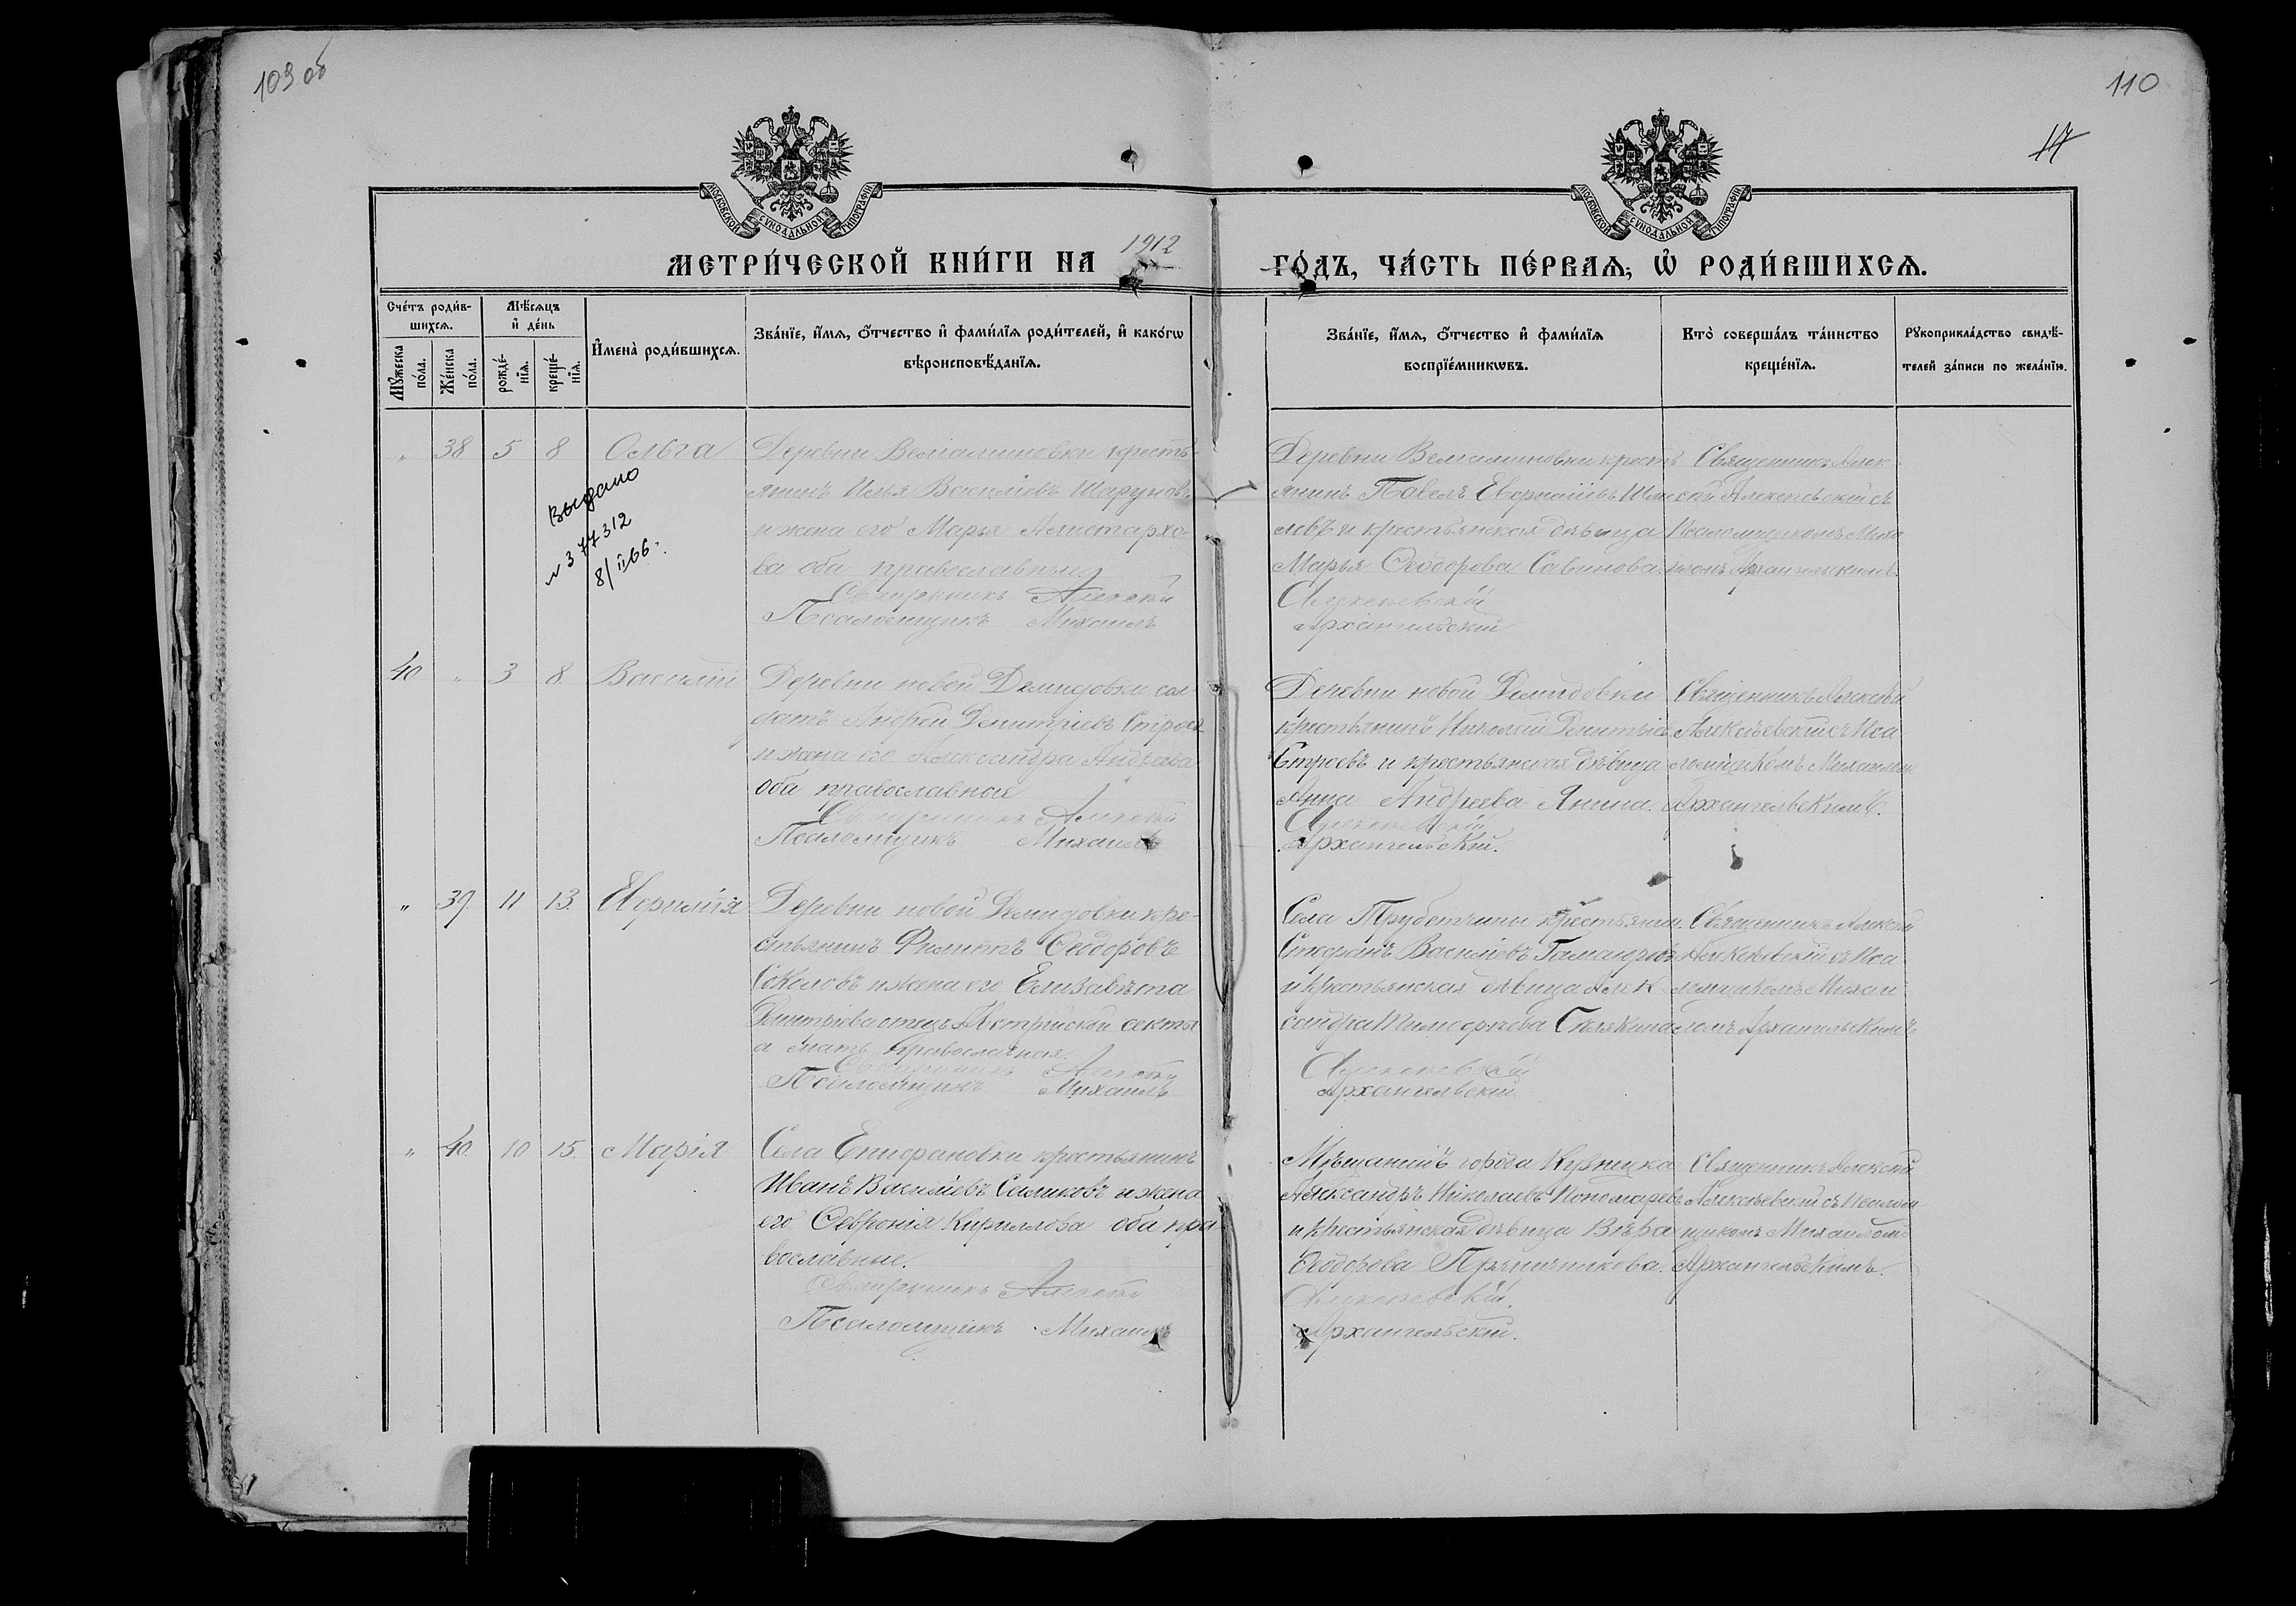 109 об
110
17
МОСКОВСКОЙ СѴНОДАЛЬНОЙ ТИПОГРАФІИ
МОСКОВСКОЙ СѴНОДАЛЬНОЙ ТИПОГРАФІИ
МЕТРИ́ЧЕСКОЙ КНИ́ГИ НА 1912 ГО́ДЪ, ЧА́СТЬ ПЕ́РВАЯ, Ѡ РОДИ́ВШИХСЯ.
Сче́тъ роди́в-
шихся.
Мꙋ́жеска по́ла.
Же́нска по́ла.
Мѣ́сяцъ и҆ де́нь
рожде́-нїя.
креще́-нїя.
И҆мена̀ роди́вшихся.
Зва́нїе, и҆́мя, ѻ҆́тчество и҆ фами́лїя роди́телей, и҆ како́гѡ
вѣроисповѣ́данїя.
Зва́нїе, и҆́мя, ѻ҆́тчество и҆ фами́лїя
воспрїе́мникѡвъ.
Кто̀ соверша́лъ та́инство
креще́нїя.
Рꙋкоприкла́дство свидѣ́-
телей за́писи по жела́нїю.
" 38 5 8 Ольга
Деревни Вельяминовки кресть-
янинъ Илья Васильевъ
и жена его Марья Аристархо-
ва оба православные.
Священникъ Алексѣй
Псаломщикъ Михаилъ
Выдано
№ 377312
8/II 66г.
Деревни Вельяминовки кресть
янинъ Павелъ
и крестьянская дѣвица
Марья Ѳеодорова Савинова.
Алексѣевскій
Архангельскій
Священникъ Алек
сѣй Алексѣевскій съ
Псаломщикомъ Миха
иломъ Архангельскимъ.
40 " 3 8 Василій
Деревни новой Демидовки сол-
датъ Андрей Димитріевъ Строев
и жена его Александра Андреева
оба православные
Священникъ Алексѣй
Псаломщикъ Михаилъ
Деревни новой Демидовки
крестьянинъ Николай Димитріев
Строевъ и крестьянская дѣвица
Анна Андреева Янина.
Алексѣевскій
Архангельскій.
Священникъ Алексѣй
Алексѣевскій съ Пса
ломщикомъ Михаилом
Архангельскимъ.
" 39 11 13 Евфимія
Деревни новой Демидовки кре-
стьянинъ Филиппъ Ѳеодоровъ
Соколовъ и жена его Елизавета
Димитріева отецъ Австрійской секты
а мать православная.
Священникъ Алексѣй
Псаломщикъ Михаилъ
Села Трубетчины крестьянин.
Стефанъ Васильевъ
и крестьянская дѣвица Алек
сандра Тимофеева
Алексѣевскій
Архангельскій
Священникъ Алексѣй
Алексѣевскій съ Пса
ломщикомъ Михаи
ломъ Архангельскимъ
" 40 10 15 Марія
Села Епифановки крестьянинъ
Иванъ Васильевъ и жена
его Февронія Кириллова оба пра
вославные.
Священникъ Алексѣй
Псаломщикъ Михаилъ
Мѣщанинъ города Кузнецка
Александръ Николаевъ Пономаревъ
и крестьянская дѣвица Вѣра
Ѳеодорова Пряничникова.
Алексѣевскій.
Архангельскій.
Священникъ Алексѣй
Алексѣевскій съ Псалом
щикомъ Михаиломъ
Архангельскимъ.